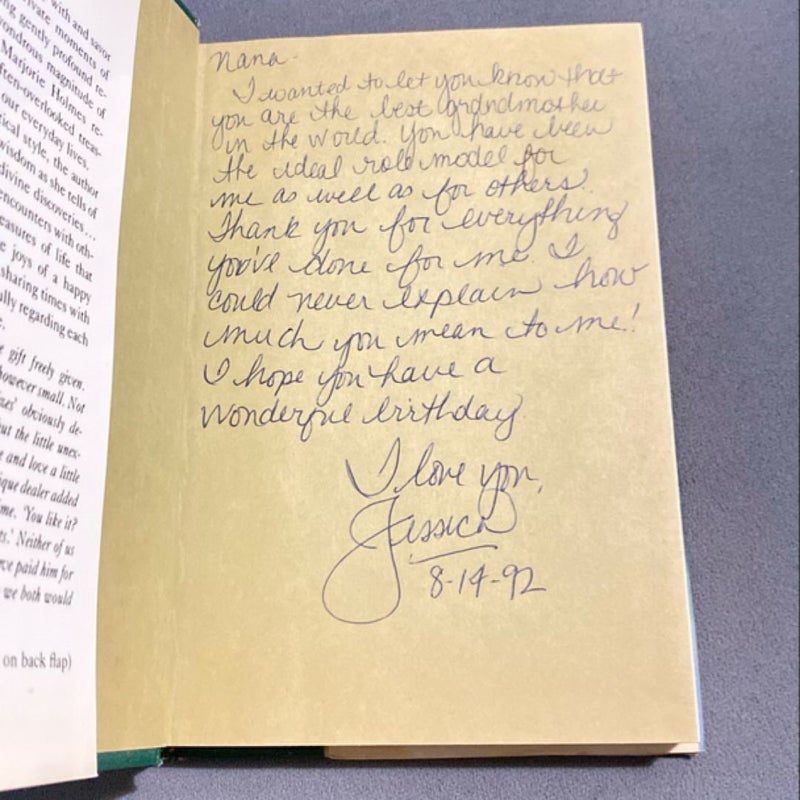 with and savor
private moments of
ng gently profound re-
wondrous magnitude of
Marjorie Holmes re-
ften-overlooked treas-
our everyday lives.
tical style, the author
wisdom as she tells of
divine discoveries...
encounters with oth-
easures of life that
e joys of a happy
sharing times with
ully regarding each
e.
e gift freely given.
however small. Not
zes' obviously de-
ut the little unex-
e and love a little
ique dealer added
ime. 'You like it?
ts.' Neither of us
we paid him for
we both would
on back flap)
Nana-
I wanted to let you know that
you are the best grandmother
in the world. You have been
the ideal role model for
me as well as for others.
Thank you for everything
you've done for me. I
could never explain how
much you mean to me!
I hope you have a
wonderful birthday
I love you,
Jessica
8-14-92